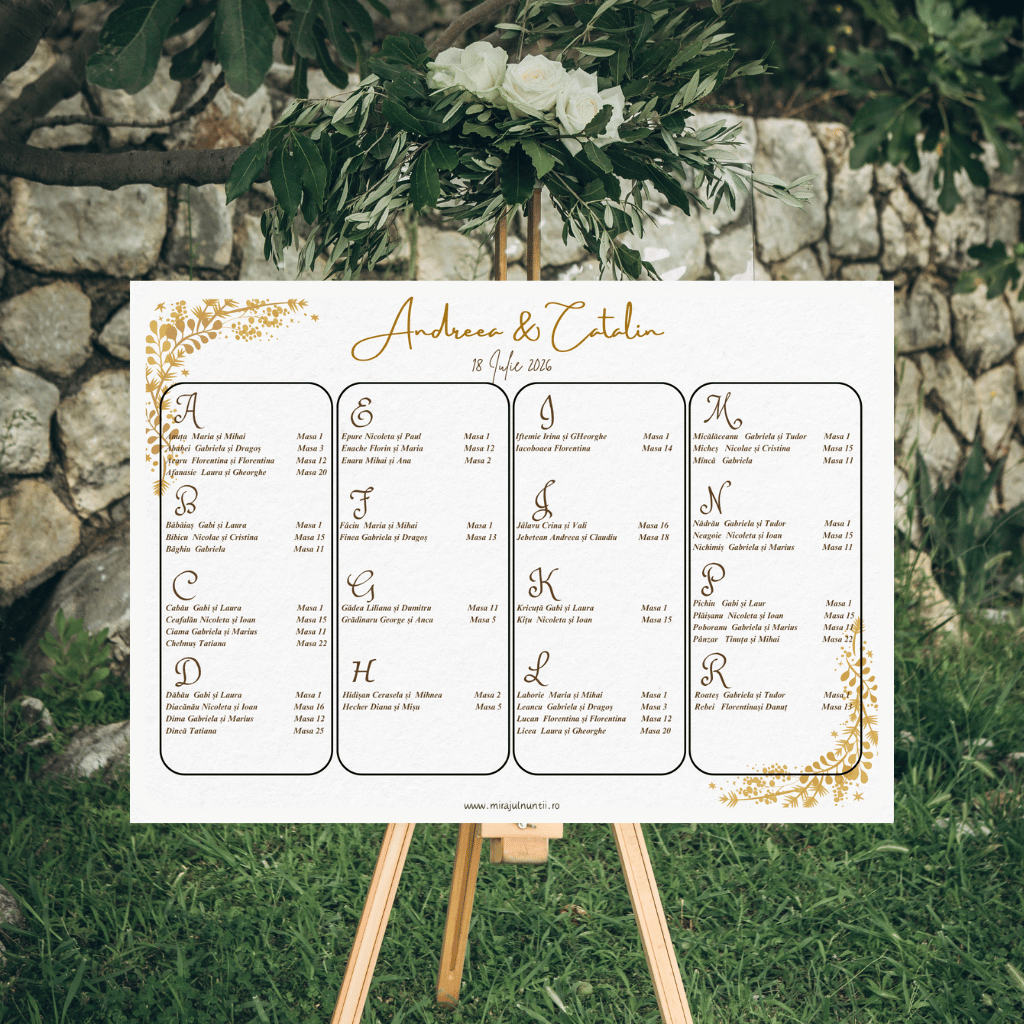 Andreea & Catalin
18 Iulie 2026
A
Maria si Mihai Masa 1
Gabriela și Dragoș Masa 3
Florentina și Florentina Masa 12
Afanasie Laura și Gheorghe Masa 20
B
Băbăiaș Gabi și Laura Masa 1
Bibicu Nicolae și Cristina Masa 15
Băghiu Gabriela Masa 11
C
Cabău Gabi și Laura Masa 1
Ceafalăn Nicoleta și Ioan Masa 15
Ciama Gabriela și Marius Masa 11
Chelmuș Tatiana Masa 22
D
Dăbău Gabi și Laura Masa 1
Diacănău Nicoleta și Ioan Masa 16
Dima Gabriela și Marius Masa 12
Dincă Tatiana Masa 25
E
Epure Nicoleta și Paul Masa 1
Enache Florin și Maria Masa 12
Enaru Mihai și Ana Masa 2
F
Făciu Maria și Mihai Masa 1
Finea Gabriela și Dragoș Masa 13
G
Gâdea Liliana și Dumitru Masa 11
Grădinaru George și Anca Masa 5
H
Hidișan Cerasela și Mihnea Masa 2
Hecher Diana și Mișu Masa 5
I
Iftemie Irina și GHeorghe Masa 1
Iacoboaea Florentina Masa 14
J
Jălavu Crina și Vali Masa 16
Jebetean Andreea și Claudiu Masa 18
K
Kricuță Gabi și Laura Masa 1
Kițu Nicoleta și Ioan Masa 15
L
Laborie Maria și Mihai Masa 1
Leancu Gabriela și Dragoș Masa 3
Lucan Florentina și Florentina Masa 12
Licea Laura și Gheorghe Masa 20
M
Micălăceanu Gabriela și Tudor Masa 1
Micheș Nicolae și Cristina Masa 15
Mincă Gabriela Masa 11
N
Nădrău Gabriela și Tudor Masa 1
Neagoie Nicoleta și Ioan Masa 15
Nichimiș Gabriela și Marius Masa 11
P
Pichiu Gabi și Laur Masa 1
Plăișanu Nicoleta și Ioan Masa 15
Poboranu Gabriela și Marius Masa 11
Pânzar Tinuța și Mihai Masa 22
R
Roateș Gabriela și Tudor Masa 1
Rebei Florentinași Danuț Masa 13
www.mirajulnuntii.ro